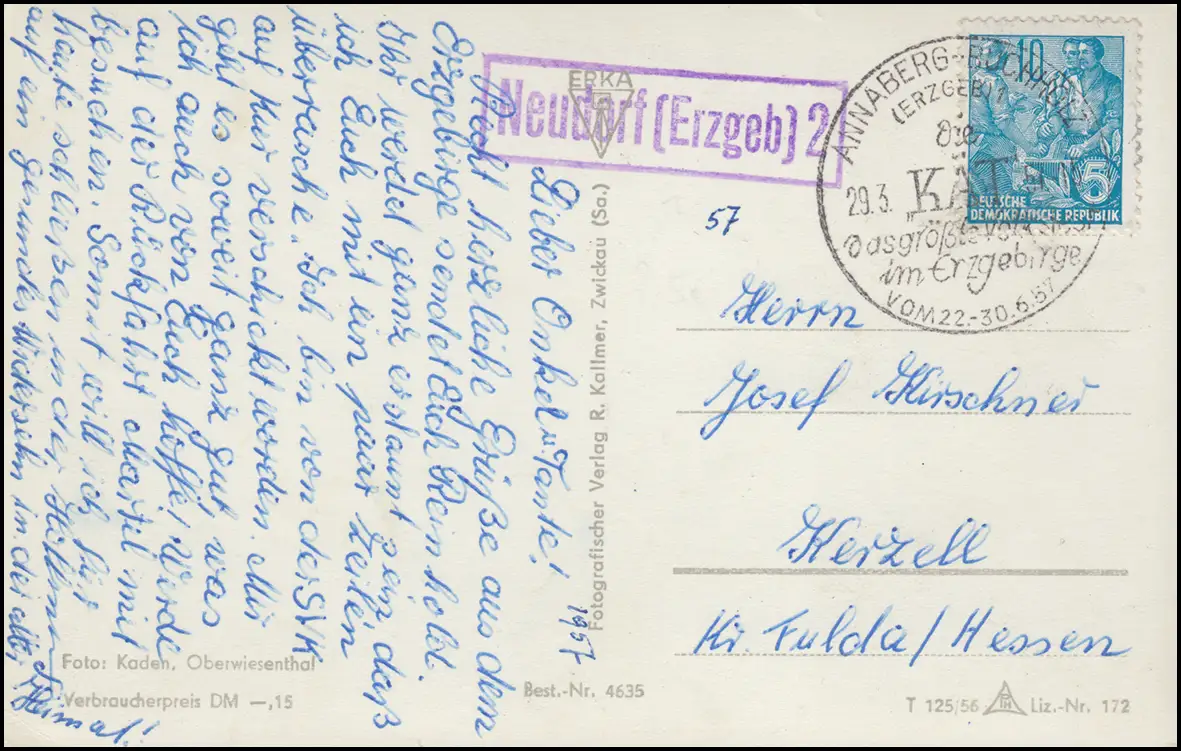 Lieber Onkel u. Tante!
Recht herzliche Grüße aus dem
Erzgebirge sendet Euch Reinhold.
Ihr werdet ganz erstaunt sein daß
ich Euch mit ein paar Zeilen
überrasche. Ich bin von der SVK
auf Kur verschickt worden. Mir
geht es soweit ganz gut was
ich auch von Euch hoffe! Werde
auf der Rückfahrt Martel mit
besuchen. Somit will ich für
heute schließen in der Hoffnung
auf ein gesundes Wiedersehn in der alten
Heimat!
1957
ERKA
Neudorf (Erzgeb) 2
57
ANNABERG-BUCHHOLZ
(ERZGEB) 1
Die
29.3.
"KÄT"
das größte
im Erzgebirge
VOM 22.-30.6.57
10
5
DEUTSCHE
DEMOKRATISCHE REPUBLIK
Herrn
Josef Kirschner
Kerzell
Kr. Fulda/Hessen
Fotografischer Verlag R. Kallmer, Zwickau (Sa.)
Foto: Kaden, Oberwiesenthal
Verbraucherpreis DM —,15
Best.-Nr. 4635
T 125/56
Liz.-Nr. 172